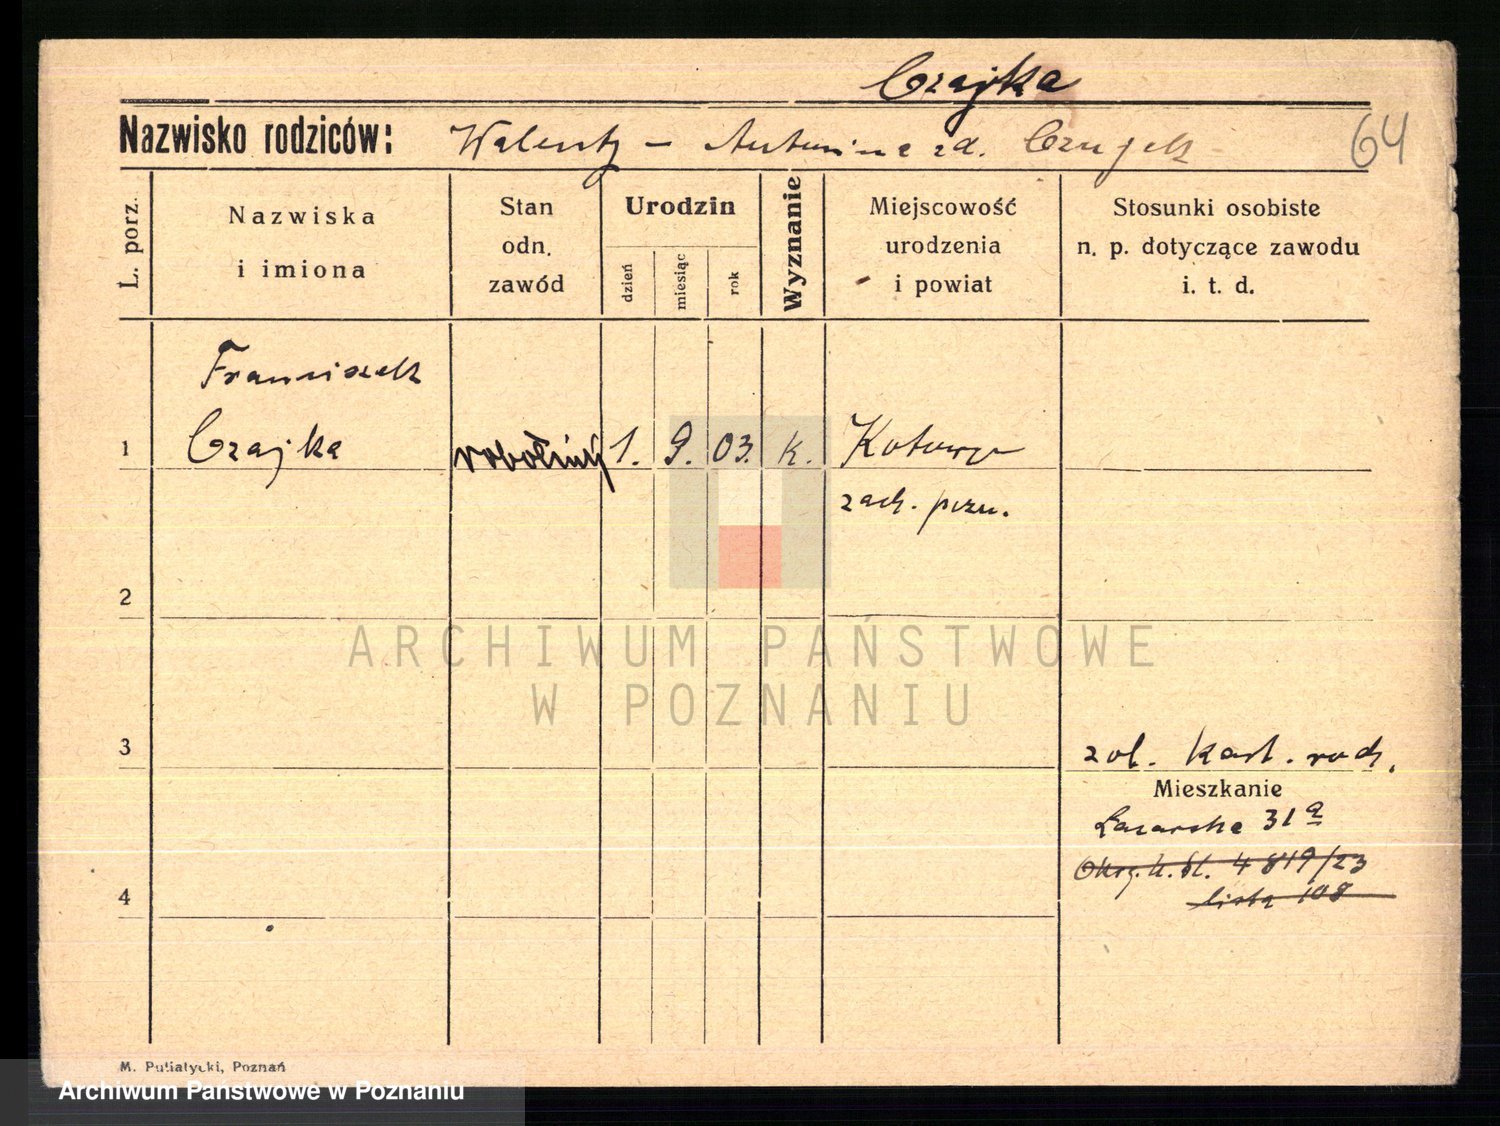 Czajka
Nazwisko rodziców: Walenty – Antonina zd.
64
L. porz.
Nazwiska
i imiona
Stan
odn.
zawód
Urodzin
dzień
miesiąc
rok
Wyznanie
Miejscowość
urodzenia
i powiat
Stosunki osobiste
n. p. dotyczące zawodu
i. t. d.
Franciszek
1 Czajka robotnik 1. 9. 03. k. Kotowo
zach. pozn.
2
3
zob. kart. rodz.
Mieszkanie
Łazarska 31a
4819/23
lista 108
4
M. Putiatycki, Poznań
ARCHIWUM PAŃSTWOWE
W POZNANIU
Archiwum Państwowe w Poznaniu